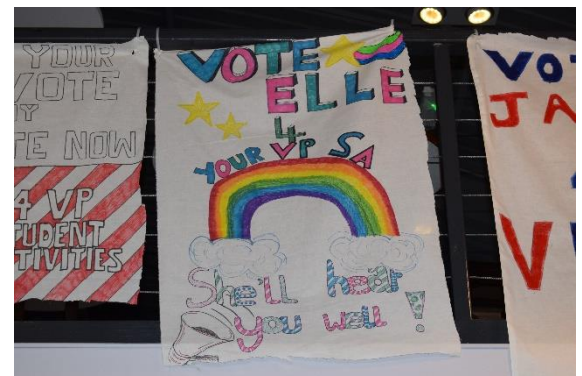 YOUR
VOTE
BY
TE NOW
4 VP
STUDENT
TIVITIES
VOTE
ELLE
4
YOUR VP SA
She'll hear
you well!
VO
JA
V